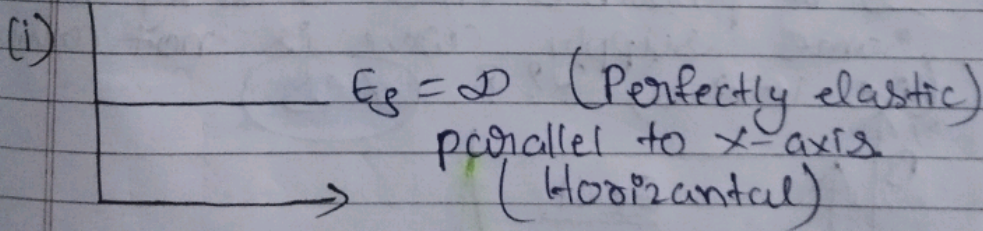 (i)
Es = ∞ (Perfectly elastic)
parallel to x-axis
(Horizantal)